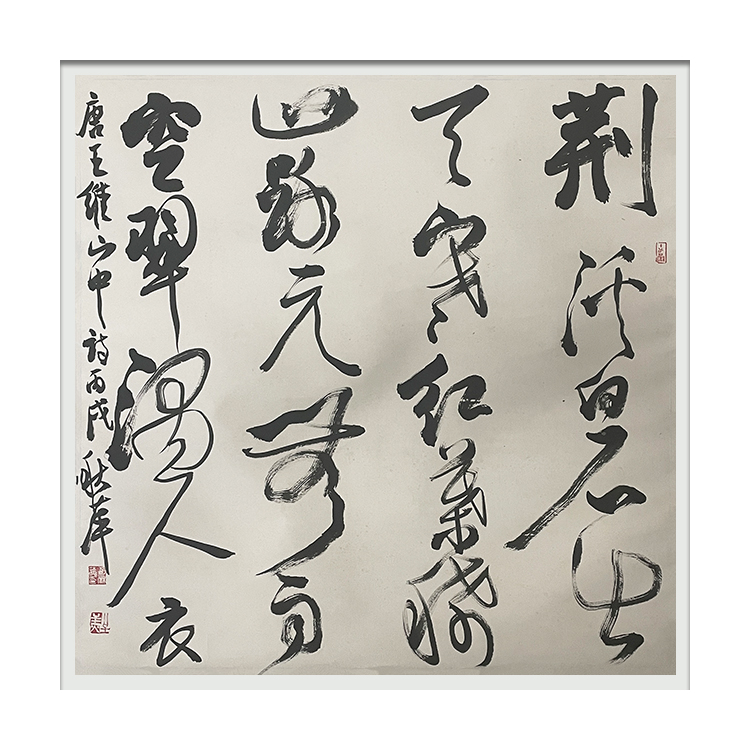 荆溪白石出
天寒红葉稀
山路元無雨
空翠湿人衣
唐王維山中詩丙戌秋